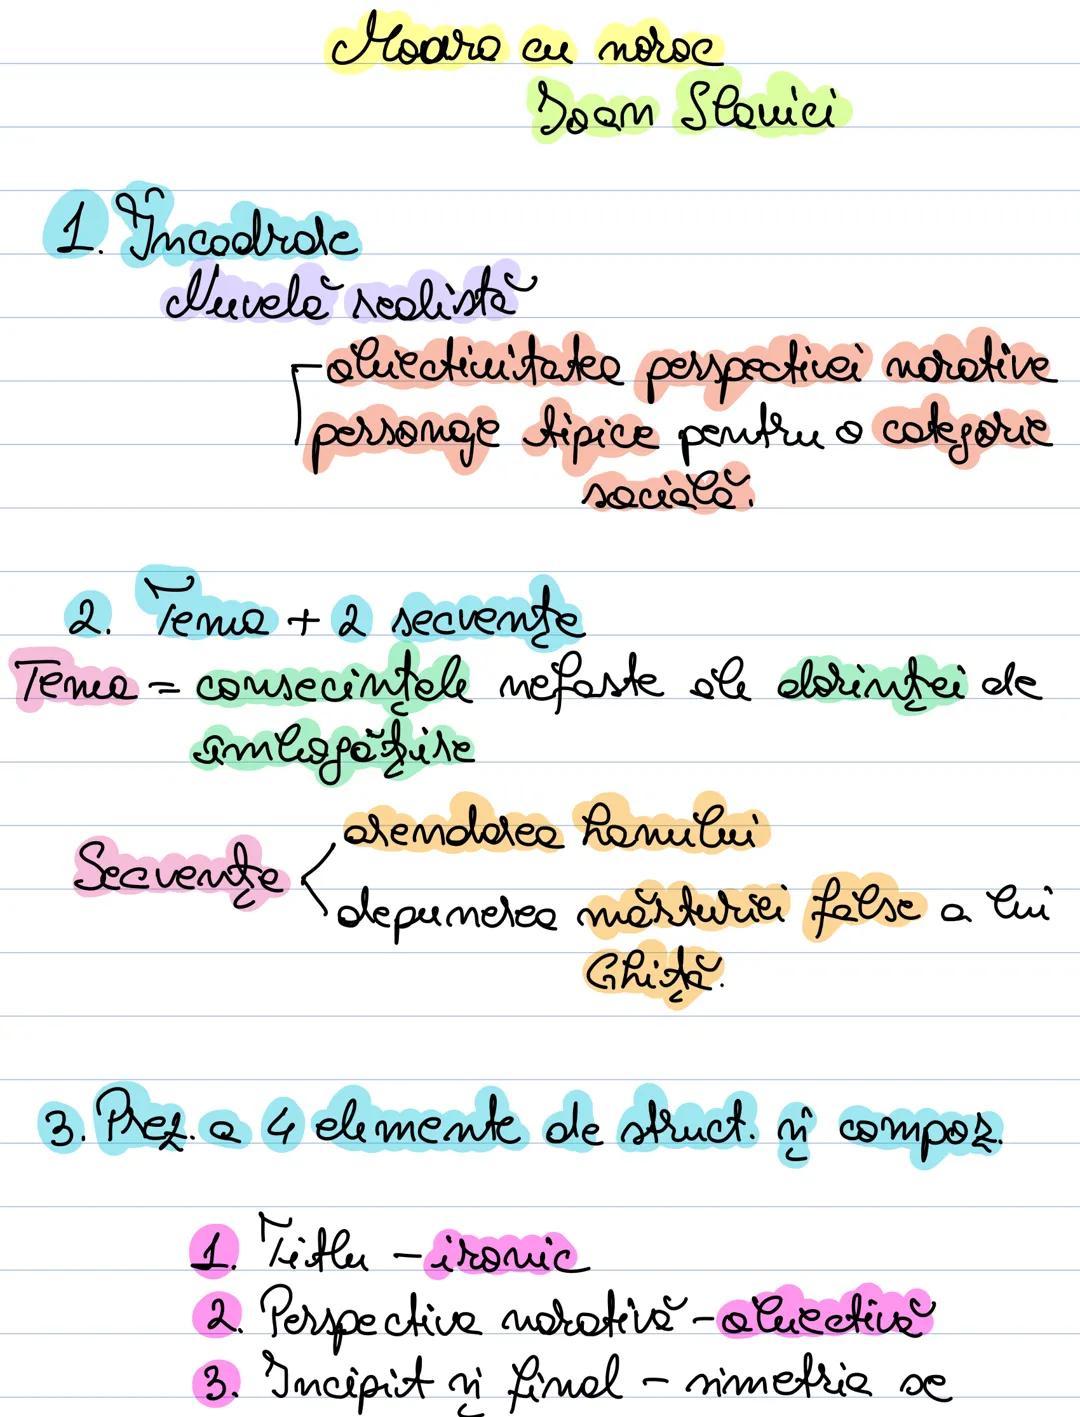 Moara cu noroc
Ioan Slavici
1. Încadrare
Nuvelă realistă
- obiectivitatea perspectivei narative
personaje tipice pentru o categorie
socială.
2. Tema + 2 secvențe
Tema = consecințele nefaste ale dorinței de
îmbogățire
Secvențe
arendarea hanului
depunerea mărturiei false a lui
Ghiță.
3. Prez. a 4 elemente de struct. și compoz.
1. Titlu - ironic
2. Perspectiva narativă - obiectivă
3. Incipit și final - simetria se